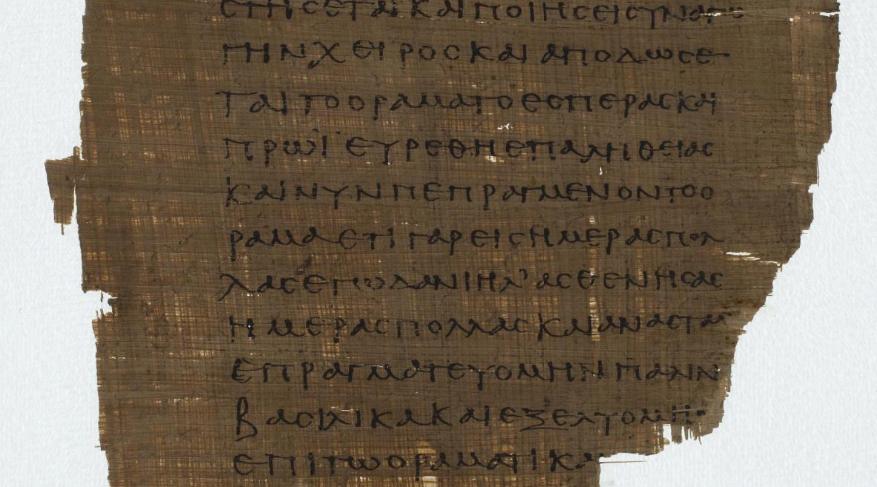 ΣΤΗΣΕΤΑΙ ΚΑΙ ΠΟΙΗΣΕΙ ΣΥΝΑΓΩ
ΓΗΝ ΧΕΙΡΟΣ ΚΑΙ ΑΠΟΔΩΣΕ
ΤΑΙ ΤΟ ΟΡΑΜΑ ΤΟ ΕΣΠΕΡΑΣ ΚΑΙ
ΠΡΩΪ ΕΥΡΕΘΗ ΕΠ ΑΛΗΘΕΙΑΣ
ΚΑΙ ΝΥΝ ΠΕΠΡΑΓΜΕΝΟΝ ΤΟ Ο
ΡΑΜΑ ΕΤΙ ΓΑΡ ΕΙΣ ΗΜΕΡΑΣ ΠΟΛ
ΛΑΣ ΕΓΩ ΔΑΝΙΗΛ’ ΑΣΘΕΝΗΣΑΣ
ΗΜΕΡΑΣ ΠΟΛΛΑΣ ΚΑΙ ΑΝΑΣΤΑΣ
ΕΠΡΑΓΜΑΤΕΥΟΜΗΝ ΠΑΛΙΝ
ΒΑΣΙΛΙΚΑ ΚΑΙ ΕΞΕΛΥΟΜΗΝ
ΕΠΙ ΤΩ ΟΡΑΜΑΤΙ ΚΑ